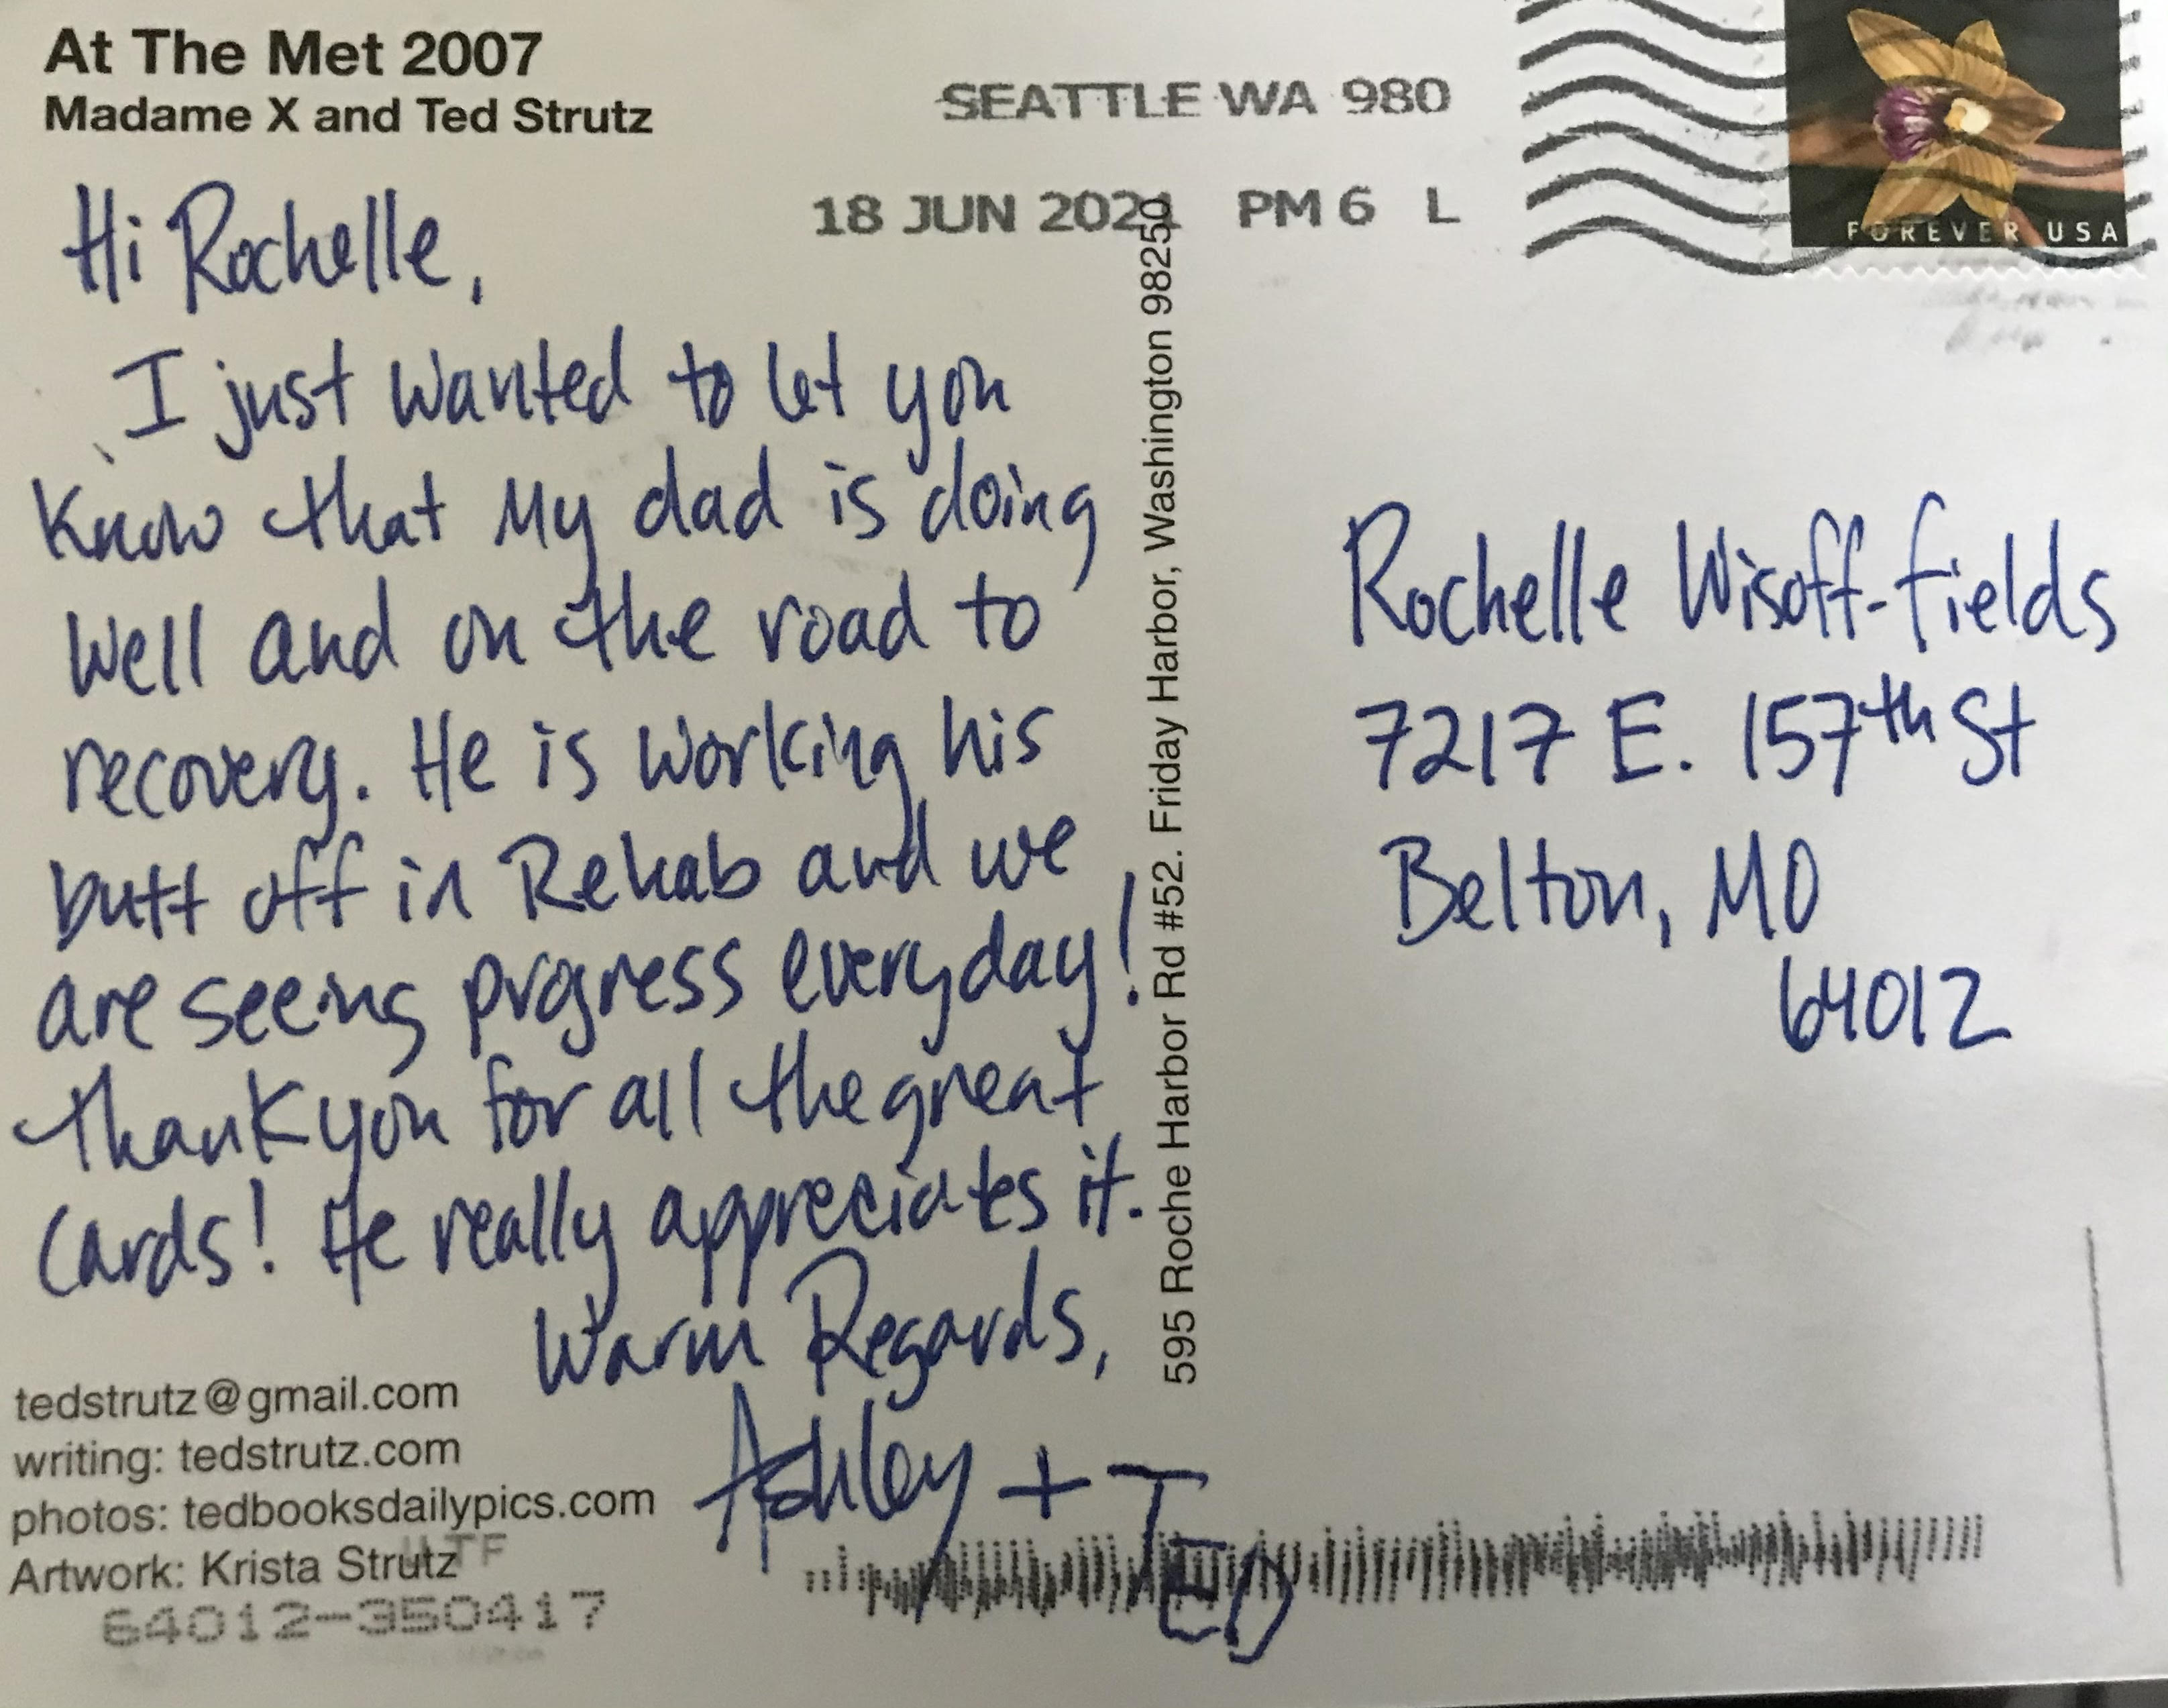 At The Met 2007
Madame X and Ted Strutz
SEATTLE WA 980
18 JUN 2021 PM 6 L
FOREVER USA
Hi Rochelle,
I just wanted to let you
Know that My dad is doing
Well and on the road to
recovery. He is working his
butt off in Rehab and we
are seeing progress everyday!
Thank you for all the great
Cards! He really appreciates it.
Warm Regards,
Ashley + TED
595 Roche Harbor Rd #52. Friday Harbor, Washington 98250
Rochelle Wisoff-Fields
7217 E. 157th St
Belton, MO
64012
tedstrutz@gmail.com
writing: tedstrutz.com
photos: tedbooksdailypics.com
Artwork: Krista Strutz
64012-350417